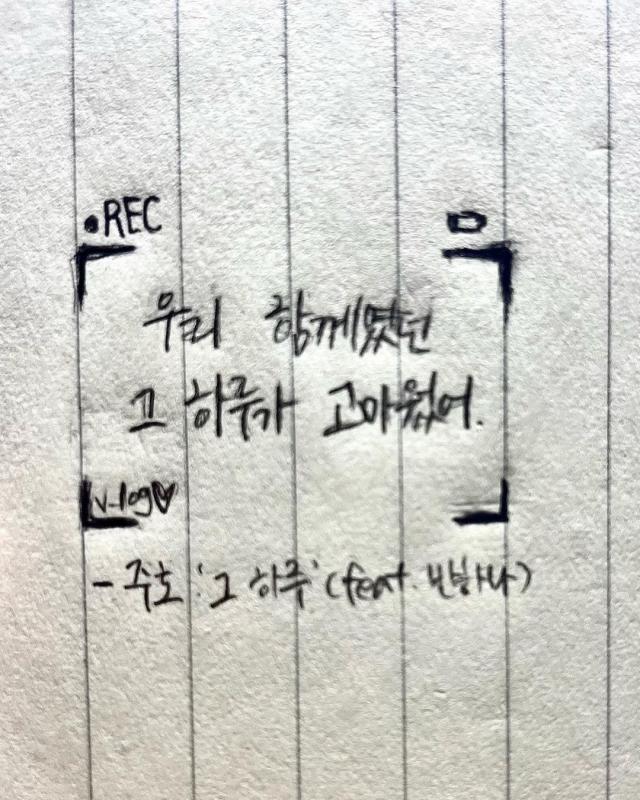 •REC
우리 함께였던
그 하루가 고마웠어.
v-log♥
- 주호 '그 하루' (feat. 반하나)